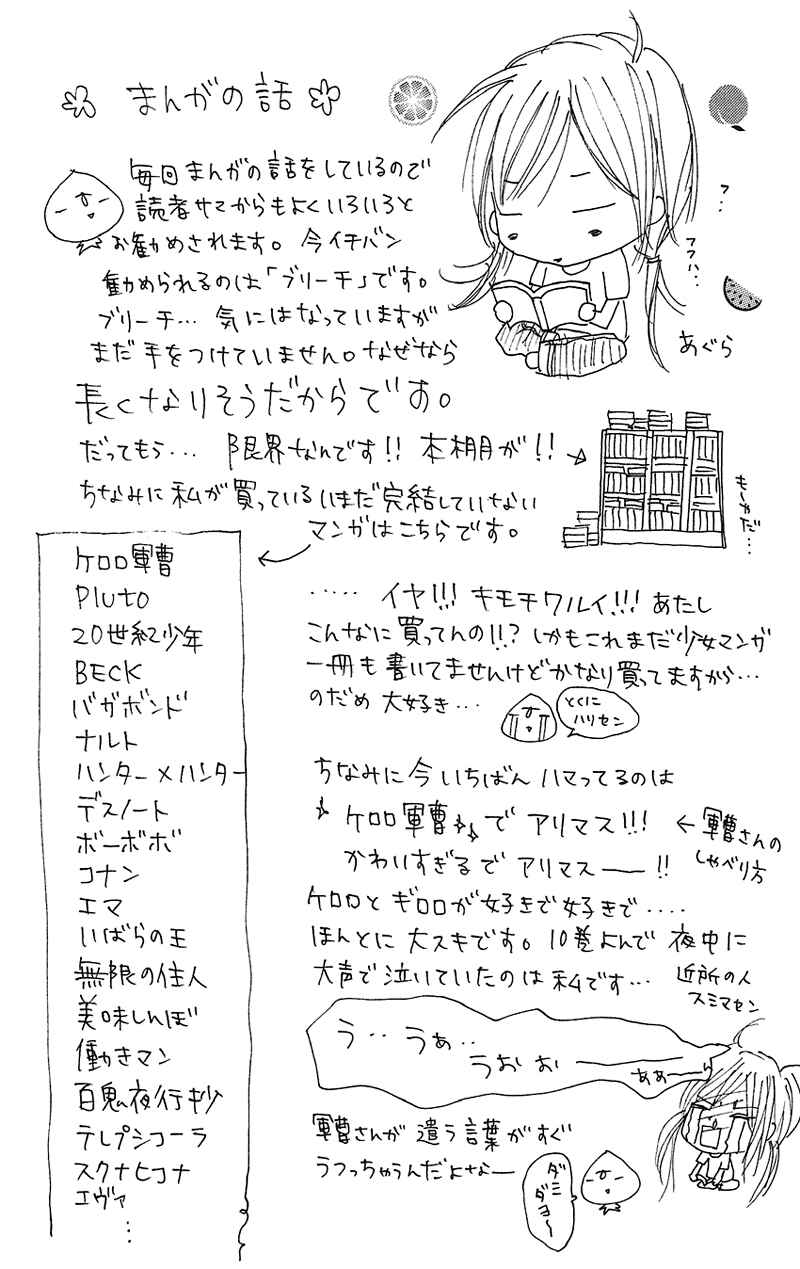 まんがの話
毎回まんがの話をしているので
読者サマからもよくいろいろと
お勧めされます。今イチバン
勧められるのは「ブリーチ」です。
ブリーチ… 気にはなっていますが
まだ手をつけていません。なぜなら
長くなりそうだからです。
フ…
フフハ…
あぐら
だってもう… 限界なんです!! 本棚が!!
もーやだ…
ちなみに私が買っているいまだ完結していない
マンガはこちらです。
ケロロ軍曹
Pluto
20世紀少年
BECK
バガボンド
ナルト
ハンター×ハンター
デスノート
ボーボボ
コナン
エマ
いばらの王
無限の住人
美味しんぼ
働きマン
百鬼夜行抄
テレプシコーラ
スクナヒコナ
エヴァ
⋮
‥‥‥ イヤ!!! キモチワルイ!!! あたし
こんなに買ってんの!!? しかもこれまだ少女マンガ
一冊も書いてませんけどかなり買ってますから…
のだめ 大好き…
とくに
ハリセン
ちなみに今いちばんハマってるのは
ケロロ軍曹 で アリマス!!!
← 軍曹さんの
しゃべり方
かわいすぎるで アリマスー!!
ケロロとギロロが好きで好きで‥‥
ほんとに大スキです。10巻よんで 夜中に
大声で泣いていたのは私です…
近所の人
スミマセン
う‥うぁ‥
うおお
ああーん
軍曹さんが 遣う言葉がすぐ
うつっちゃうんだよなー
ダミ
ダヨ〜